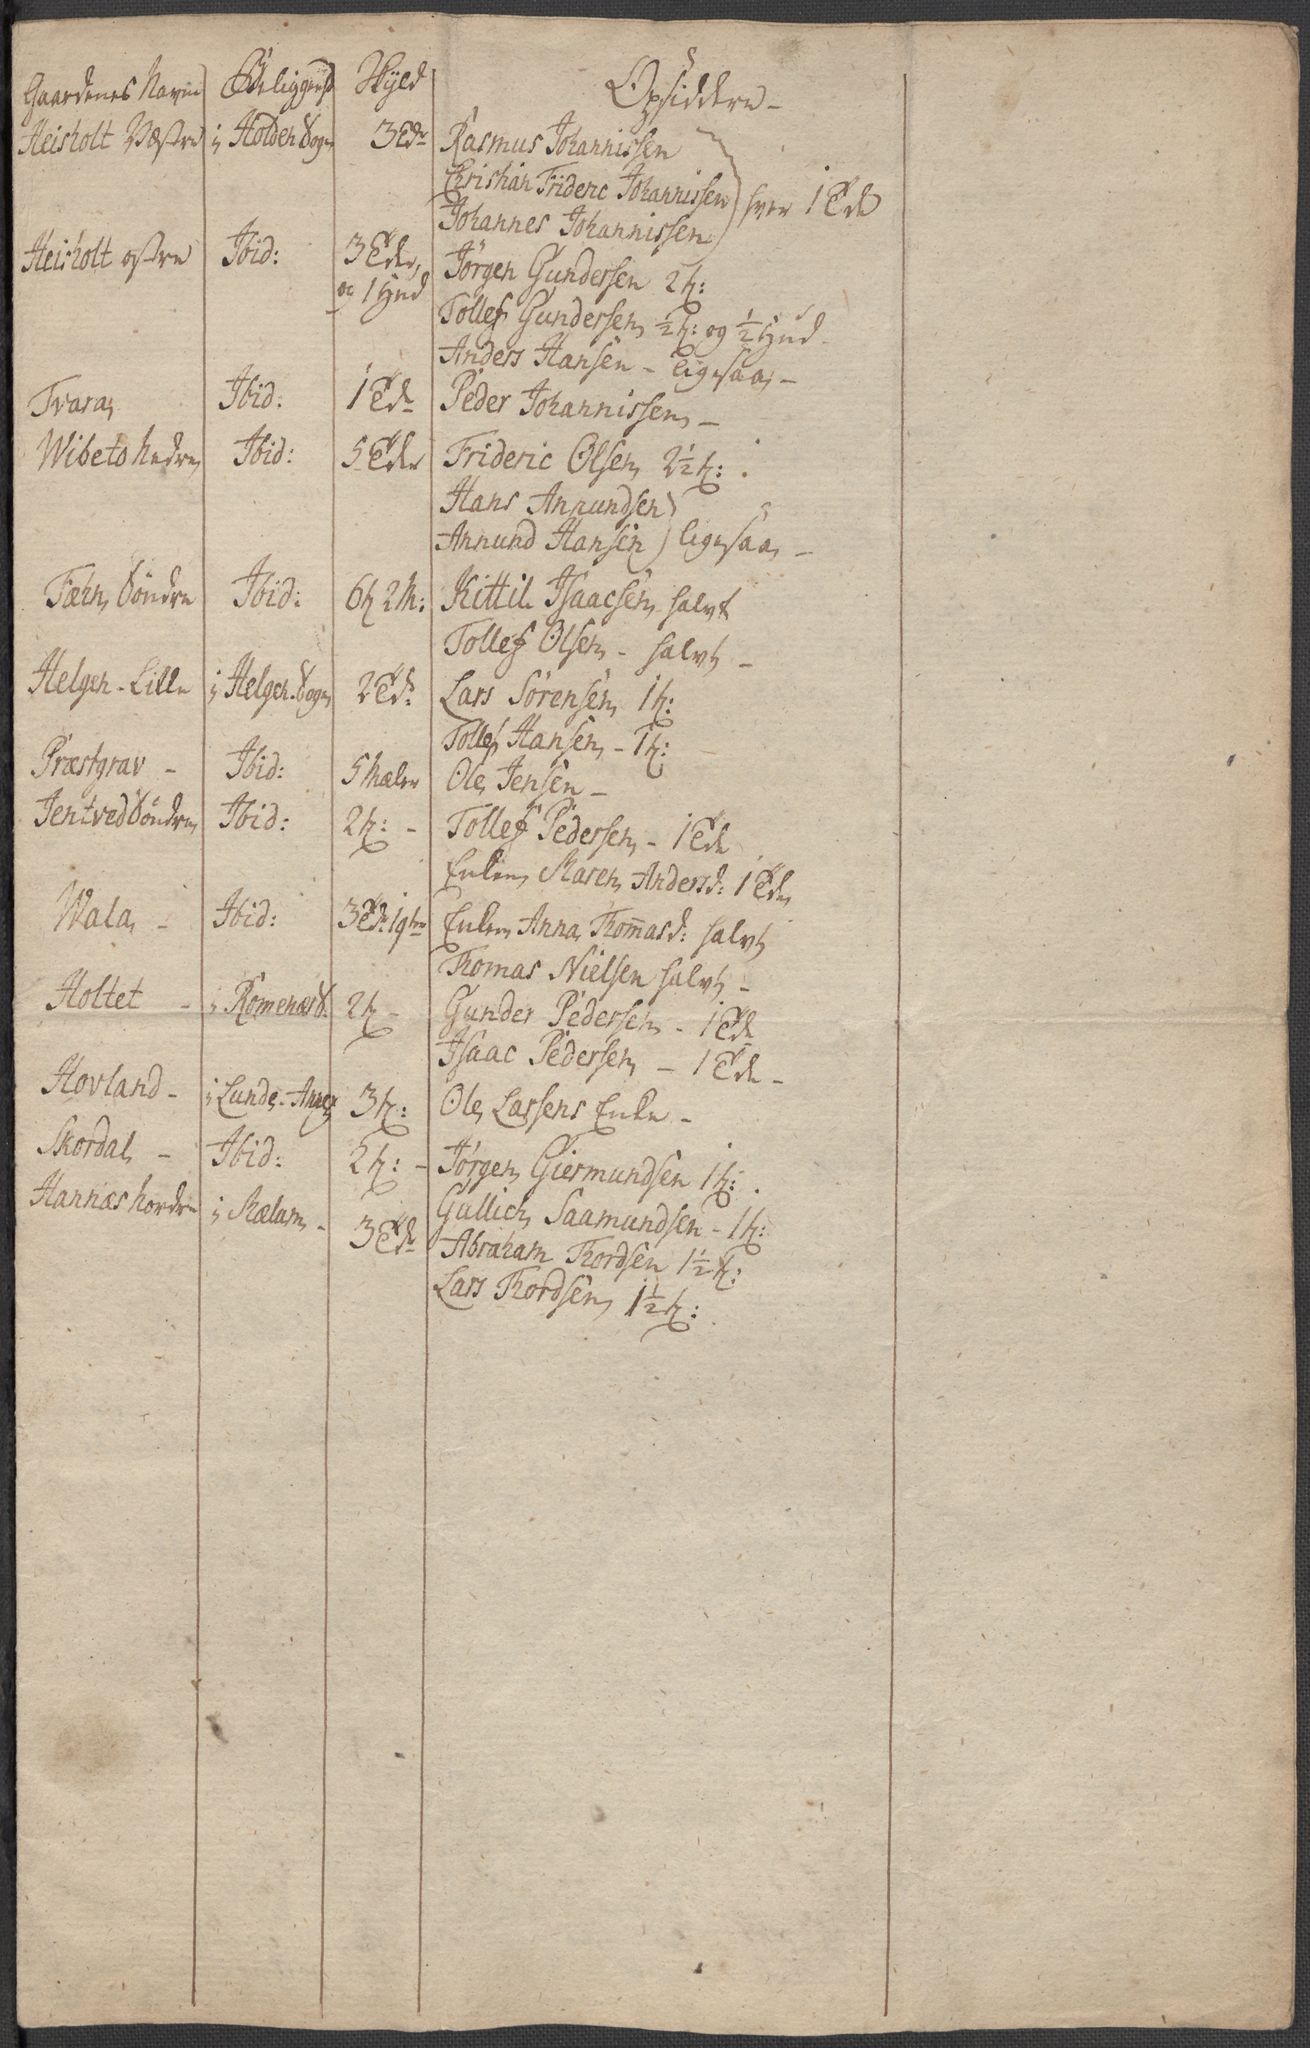 Gaardenes Navne Beliggende Skyld Opsiddere -
Heisholt Vestre i Holden Sogn 3 Tdr Rasmus Johannissen
Christian Frideric Johannissen hver 1 Tde
Johannes Johannissen
Heisholt østre Ibid: 3 Tdr, Jørgen Gundersen 2 h:
og 1 Hud Tollef Gundersen ½ h: og ½ Hud -
Anders Hansen - ligesaa -
Tvara Ibid: 1 Tde Peder Johannissen -
Wibeto Nedre Ibid: 5 Tdr Frideric Olsen 2½ h:
Hans Annundsen
Annund Hansen ligesaa -
Fæhn Söndre Ibid: 6 h 2 M: Kittil Isaacsen halvt
Tollef Olsen - halvt -
Helgen - Lille i Helgen Sogn 2 Td: Lars Sörensen 1 h:
Tollef Hansen - 1 h:
Præstgrav - Ibid: 5 Mæler Ole Jensen -
Jentved Söndre Ibid: 2 h: - Tollef Pedersen - 1 Tde
Enken Maren Andersd: 1 Tde
Wala - Ibid: 3 Td: 1 qtr Enken Anna Thomasd: halvt
Thomas Nielsen halvt -
Holtet - i Romenæs S. 2 h - Gunder Pedersen - 1 Tde
Isaac Pedersen - 1 Tde -
Hovland - i Lunde - Annex 3 h: Ole Larsens Enke -
Skordal - Ibid: 2 h: - Jørgen Giermundsen 1 h:
Gullich Saamundsen - 1 h:
Hannæs Nordre i Mælum - 3 Td Abraham Thordsen 1½ h:
Lars Thordsen 1½ h: